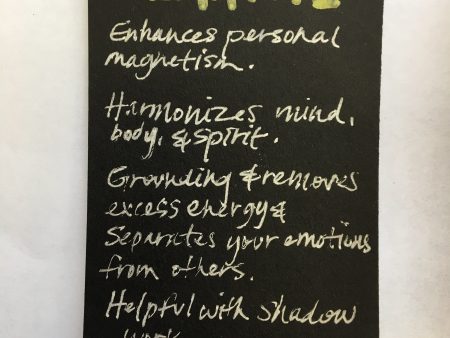 Enhances personal
magnetism.
Harmonizes mind,
body, & spirit.
Grounding & removes
excess energy &
Separates your emotions
from others.
Helpful with shadow
work